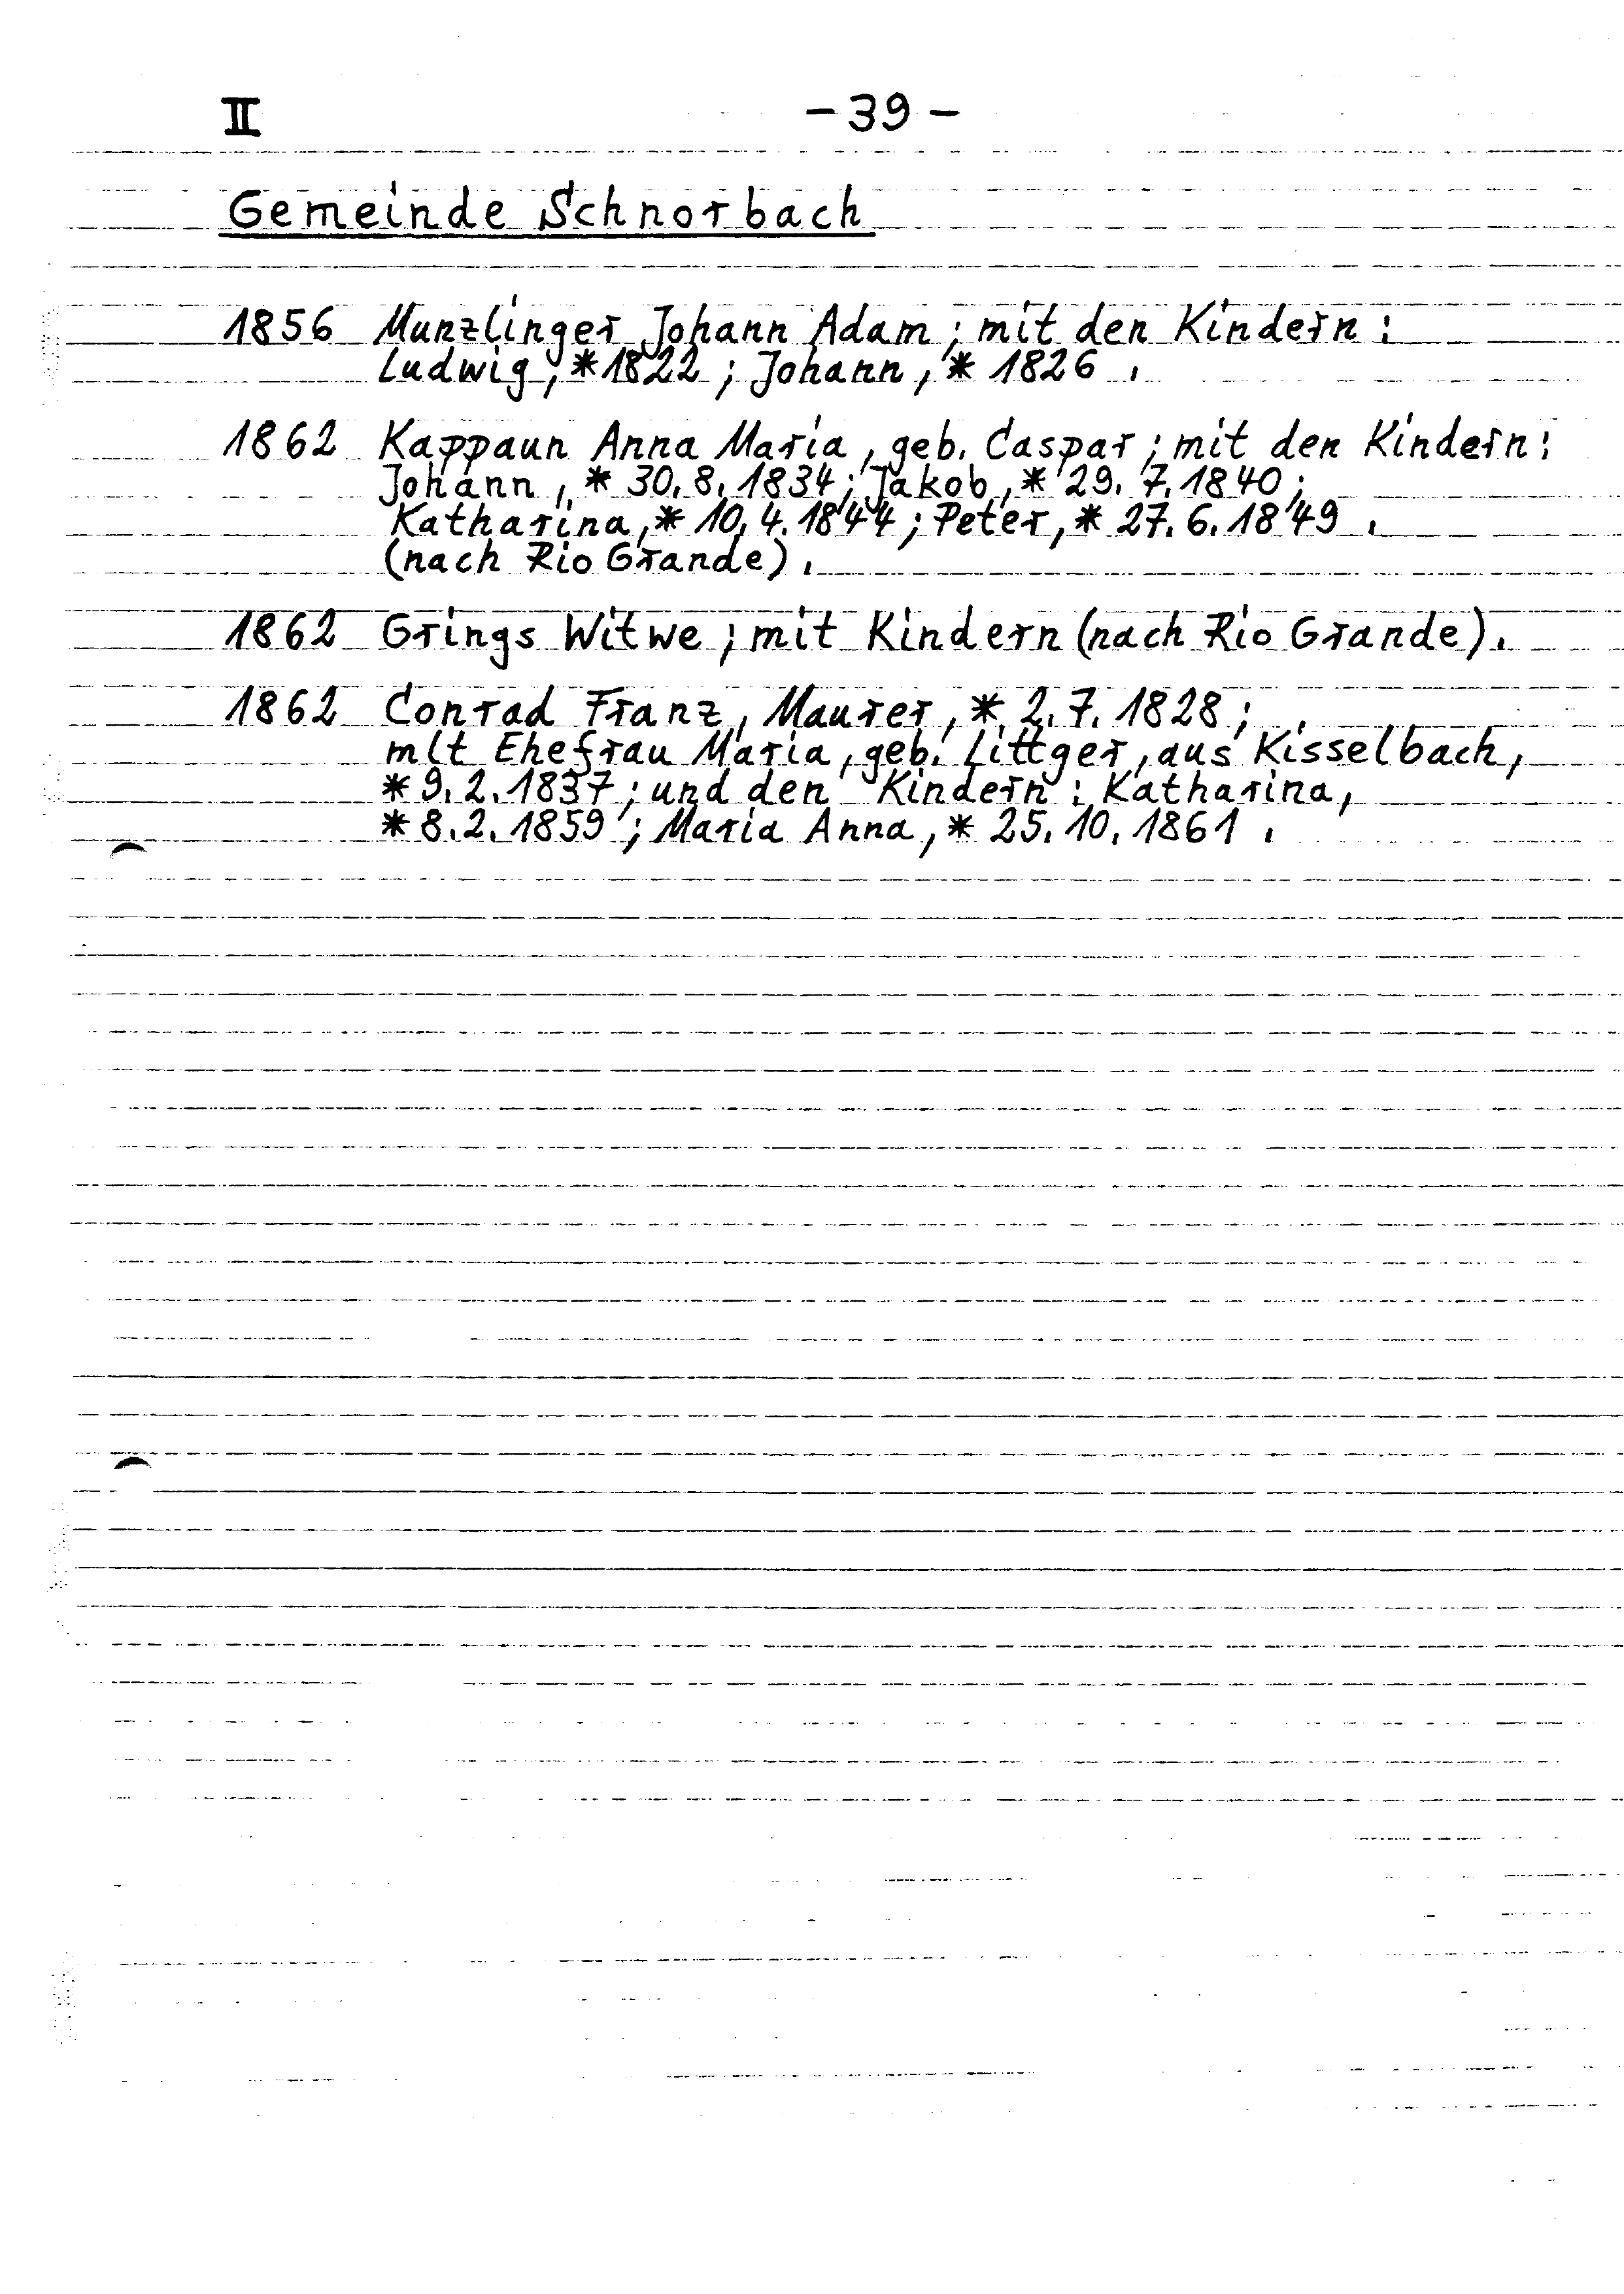 II
- 39 -
Gemeinde Schnorbach
1856 Munzlinger Johann Adam ; mit den Kindern :
Ludwig, * 1822 ; Johann, * 1826 .
1862 Kappaun Anna Maria, geb. Caspar ; mit den Kindern :
Johann, * 30. 8. 1834 ; Jakob, * 29. 7. 1840 ;
Katharina, * 10. 4. 1844 ; Peter, * 27. 6. 1849 .
(nach Rio Grande) .
1862 Grings Witwe ; mit Kindern (nach Rio Grande) .
1862 Conrad Franz, Maurer, * 2. 7. 1828 ;
mit Ehefrau Maria, geb. Littger, aus Kisselbach,
* 9. 2. 1837 ; und den Kindern : Katharina,
* 8. 2. 1859 ; Maria Anna, * 25. 10. 1861 .